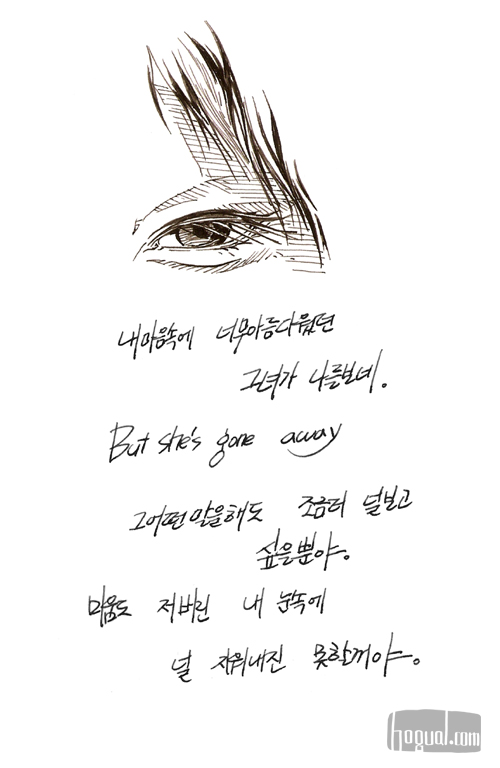 내마음속에 너무아름다웠던
그녀가 나를보네.
But she's gone away
그어떤말을해도 조금더 널보고
싶을뿐야.
미움도 저버린 내 눈속에
널 지워내진 못할꺼야.
hogual.com